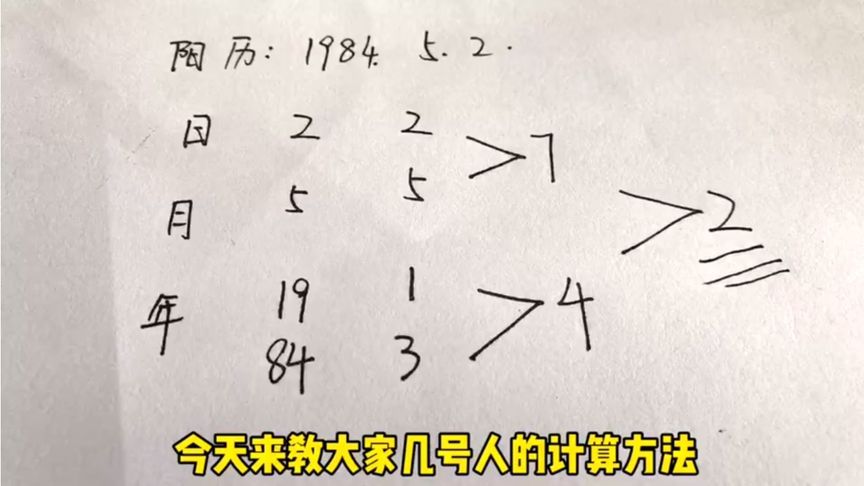 阳历: 1984. 5. 2.
日 2 2 > 7
月 5 5
> 2
年 19 1 > 4
84 3
今天来教大家几号人的计算方法